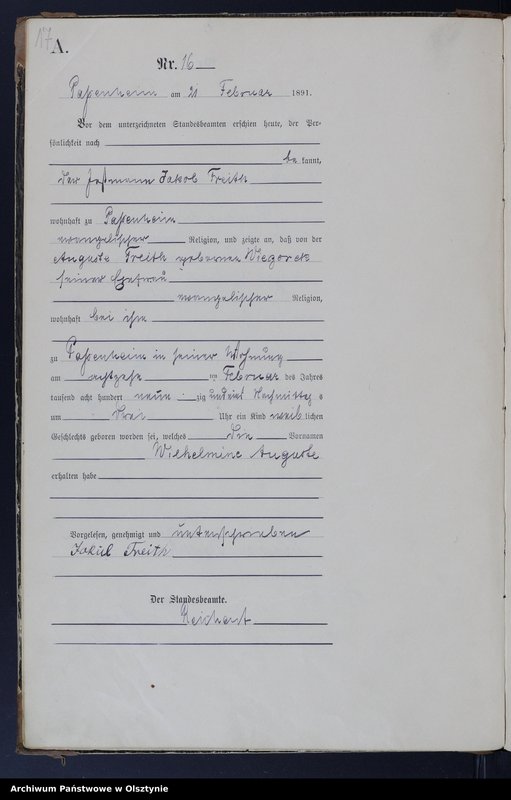 17
A.
Nr. 16
Passenheim am 21 Februar 1891.
Vor dem unterzeichneten Standesbeamten erschien heute, der Per-
sönlichkeit nach
be kannt,
der Jakob Freith
wohnhaft zu Passenheim
evangelischer Religion, und zeigte an, daß von der
Auguste Freith geborenen Wiegoreck
seiner Ehefrau
evangelischer Religion,
wohnhaft bei ihm
zu Passenheim in seiner Wohnung
am achtzehn ten Februar des Jahres
tausend acht hundert neun zig und eins Nachmittag s
um drei Uhr ein Kind weib lichen
Geschlechts geboren worden sei, welches die Vornamen
Wilhelmine Auguste
erhalten habe
Vorgelesen, genehmigt und unterschrieben
Jakob Freith
Der Standesbeamte.
Reichert
Archiwum Państwowe w Olsztynie